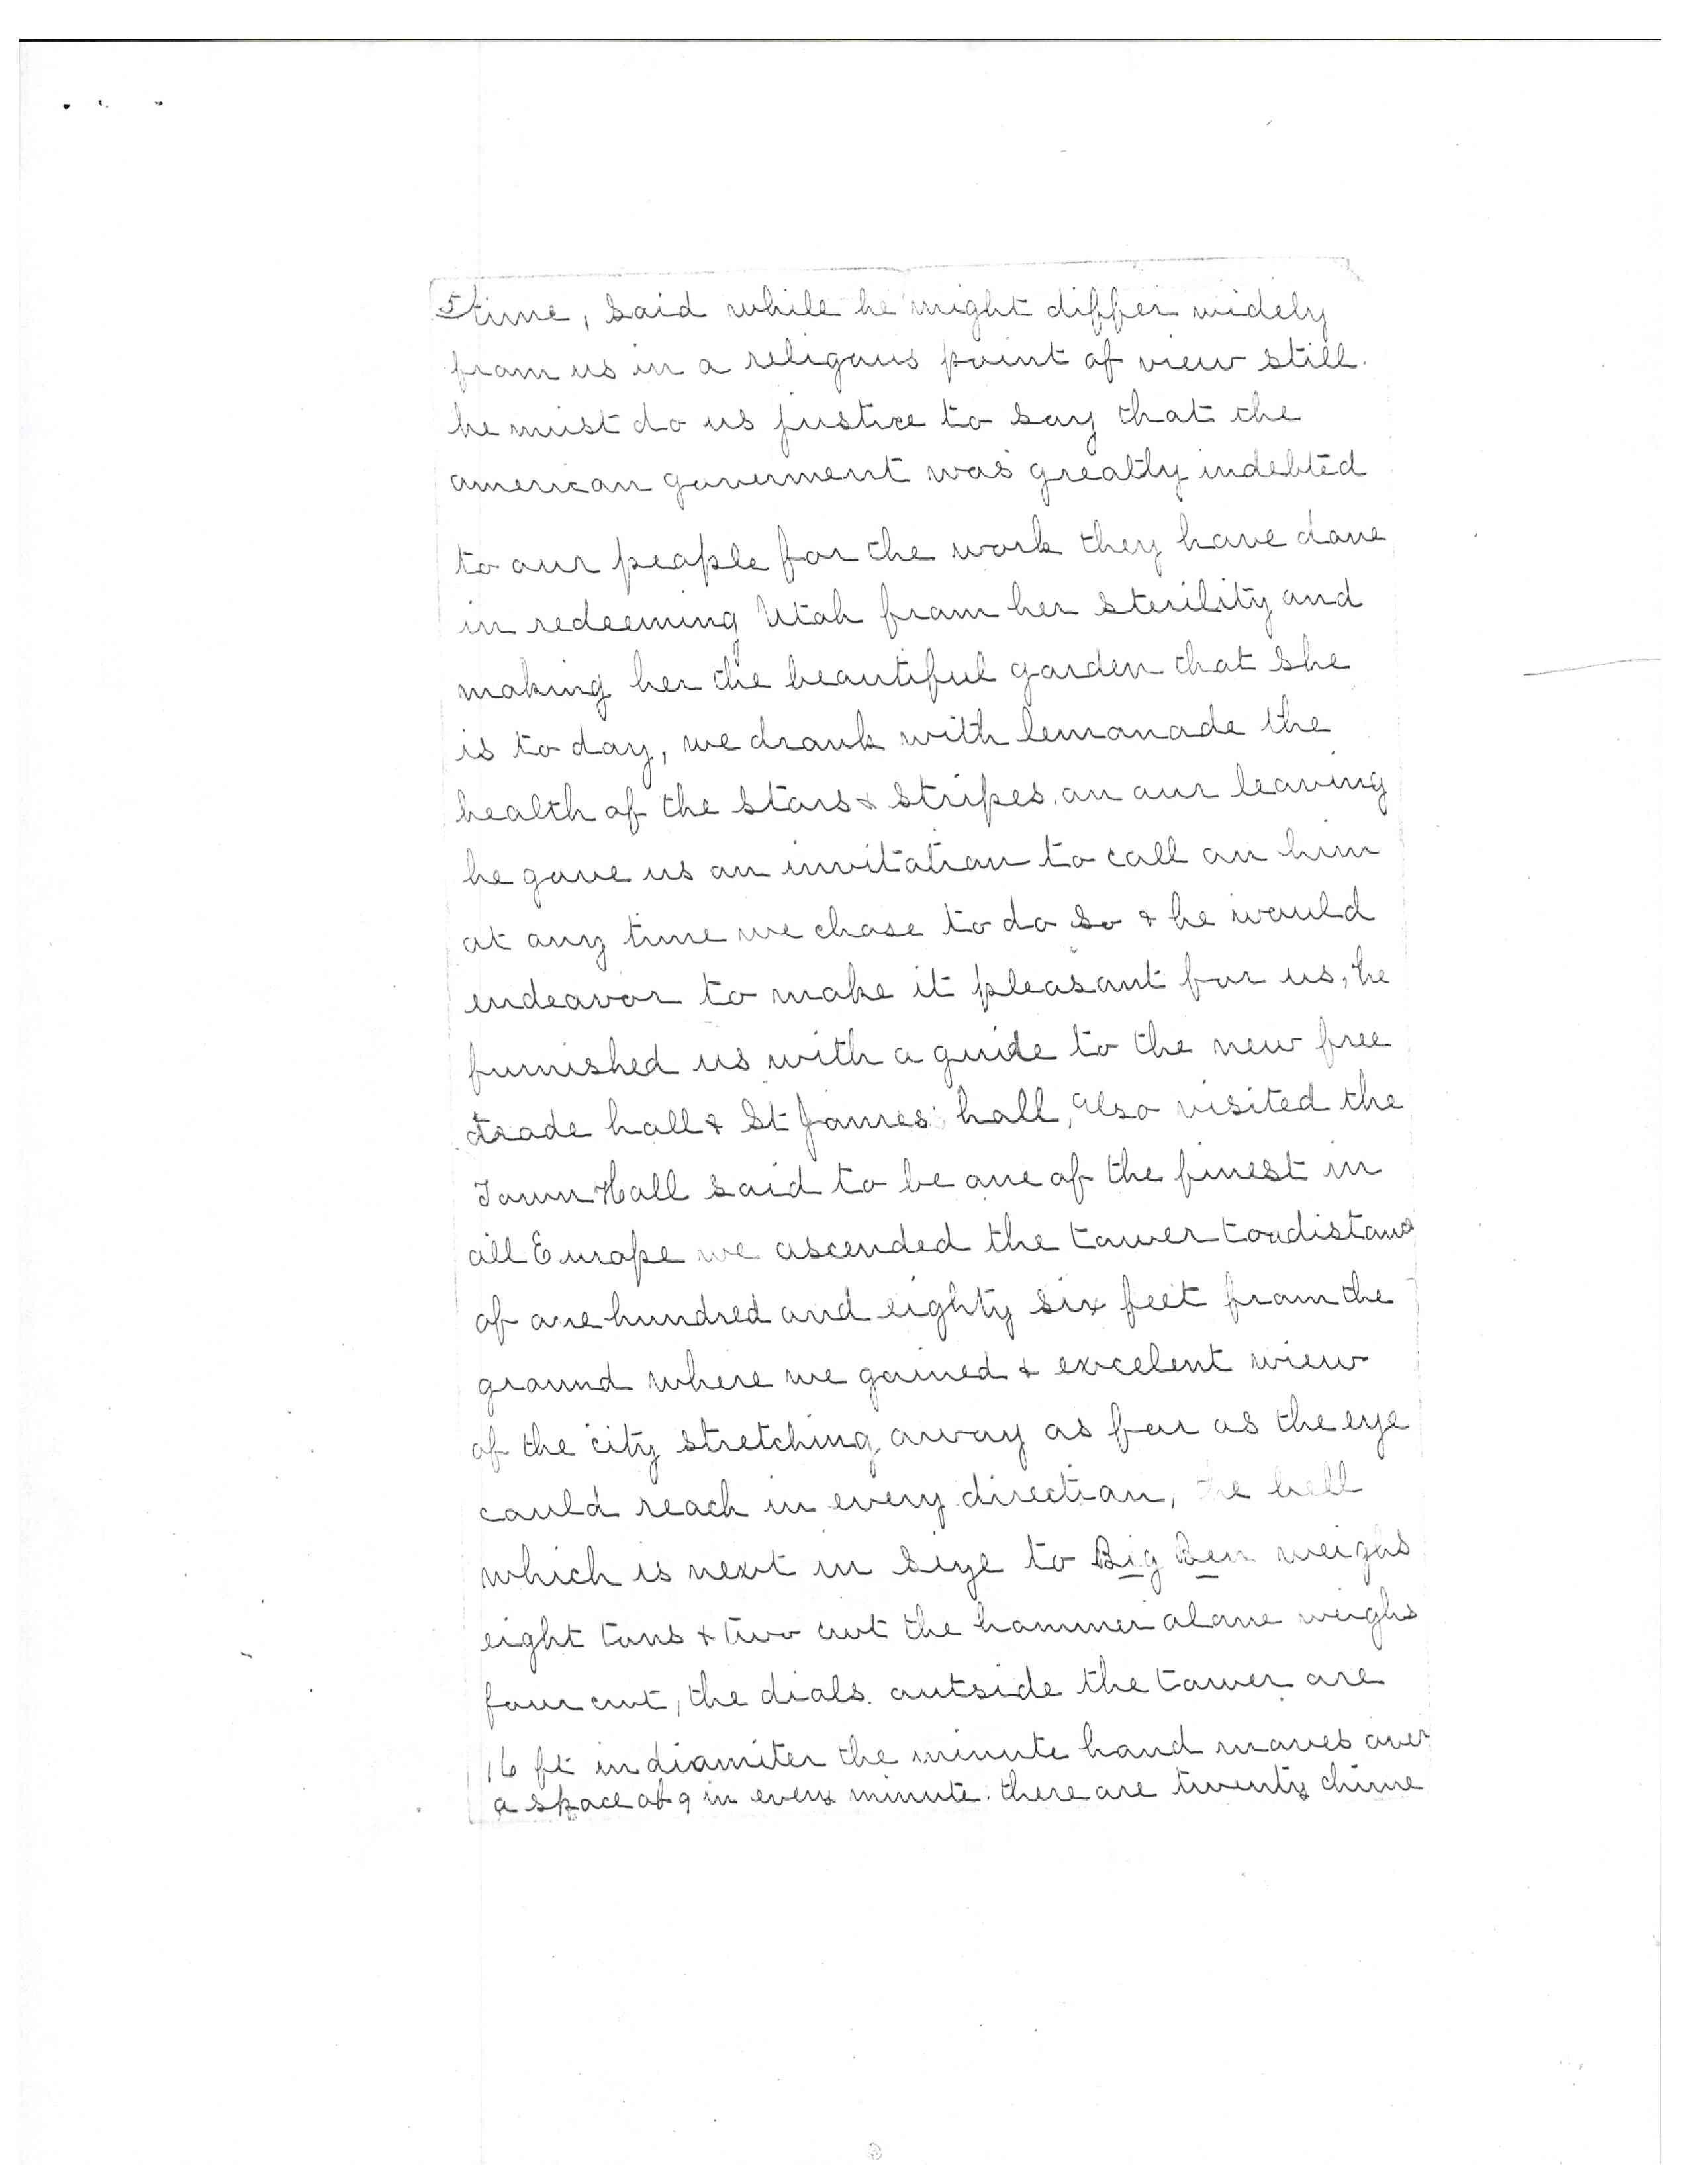 5 time, said while he might differ widely
from us in a religous point of view still.
he must do us justice to say that the
american goverment was greatly indebted
to our people for the work they have done
in redeeming Utah from her sterility and
making her the beautiful garden that she
is to day, we drank with lemonade the
health of the stars & stripes. on our leaving
he gave us an invitation to call on him
at any time we chose to do so & he would
endeavor to make it pleasant for us, he
furnished us with a guide to the new free
trade hall & St James hall, also visited the
Town Hall said to be one of the finest in
all Europe we ascended the tower to a distanc
of one hundred and eighty six feet from the
ground where we gained & excelent view
of the city stretching away as far as the eye
could reach in every direction, the bell
which is next in size to Big Ben weighs
eight tons & two cwt the hammer alone weighs
four cwt, the dials. outside the tower are
16 ft in diamiter the minute hand moves over
a space of 9 in every minute. there are twenty chime